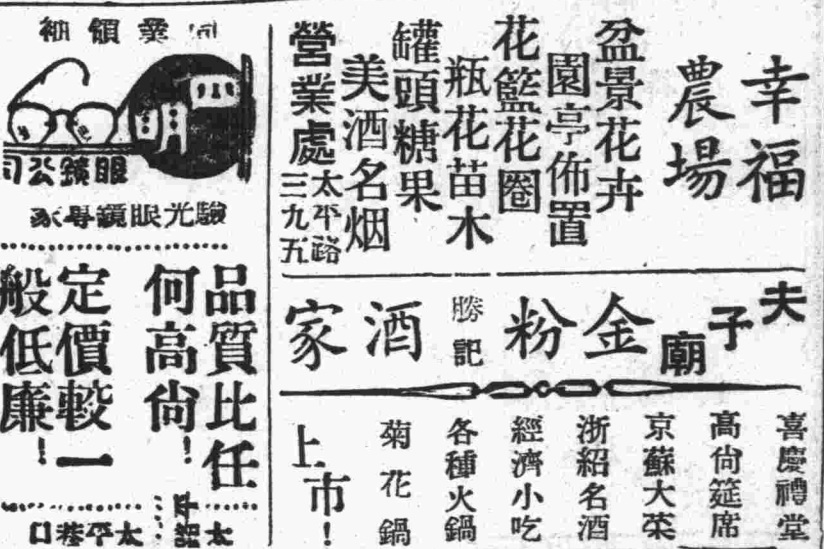 幸福
農場
盆景花卉
園亭佈置
花籃花圈
瓶花苗木
罐頭糖果
美酒名烟
營業處
太平路
三九五
夫子廟
金粉
勝記
酒家
喜慶禮堂
高尙筵席
京蘇大菜
浙紹名酒
經濟小吃
各種火鍋
菊花鍋
上市！
同業領袖
明
眼鏡公司
驗光眼鏡專家
品質比任
何高尙！
定價較一
般低廉！
太平路
太平巷口